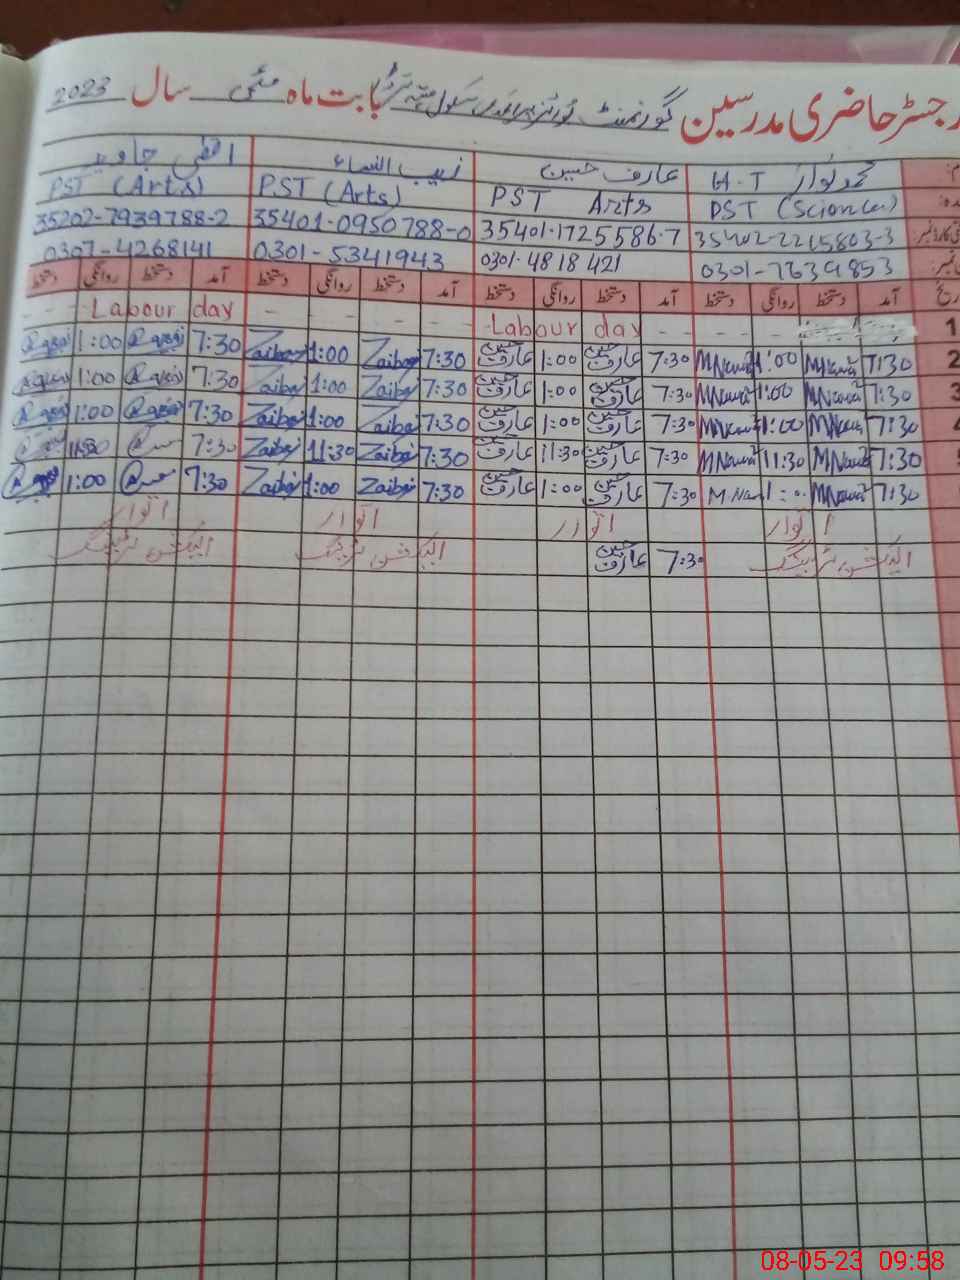 رجسٹر حاضری مدرسین گورنمنٹ سکول بابت ماہ مئی سال 2023
محمد نواز H.T عارف حسین زیب النساء
PST (Science) PST Arts PST (Arts) PST (Arts)
35401-1725586-7 35401-0950788-0 35202-7939788-2
0301-7639853 0301-4818421 0301-5341943 0307-4268141
تاریخ آمد دستخط روانگی دستخط آمد دستخط روانگی دستخط آمد دستخط روانگی دستخط آمد دستخط روانگی دستخط
1 Labour day Labour day
2 7:30 MNawaz 1:00 MNawaz 7:30 عارف حسین 1:00 عارف حسین 7:30 Zaibi 1:00 Zaibi 7:30 1:00
3 7:30 MNawaz 1:00 MNawaz 7:30 عارف حسین 1:00 عارف حسین 7:30 Zaibi 1:00 Zaibi 7:30 1:00
4 7:30 MNawaz 1:00 MNawaz 7:30 عارف حسین 1:00 عارف حسین 7:30 Zaibi 1:00 Zaibi 7:30 1:00
7:30 MNawaz 11:30 MNawaz 7:30 عارف حسین 11:30 عارف حسین 7:30 Zaibi 11:30 Zaibi 7:30 11:30
7:30 MNawaz 1:00 M.Na 7:30 عارف حسین 1:00 عارف حسین 7:30 Zaibi 1:00 Zaibi 7:30 1:00
اتوار اتوار اتوار اتوار
الیکشن ٹریننگ 7:30 عارف حسین الیکشن ٹریننگ الیکشن ٹریننگ
08-05-23 09:58